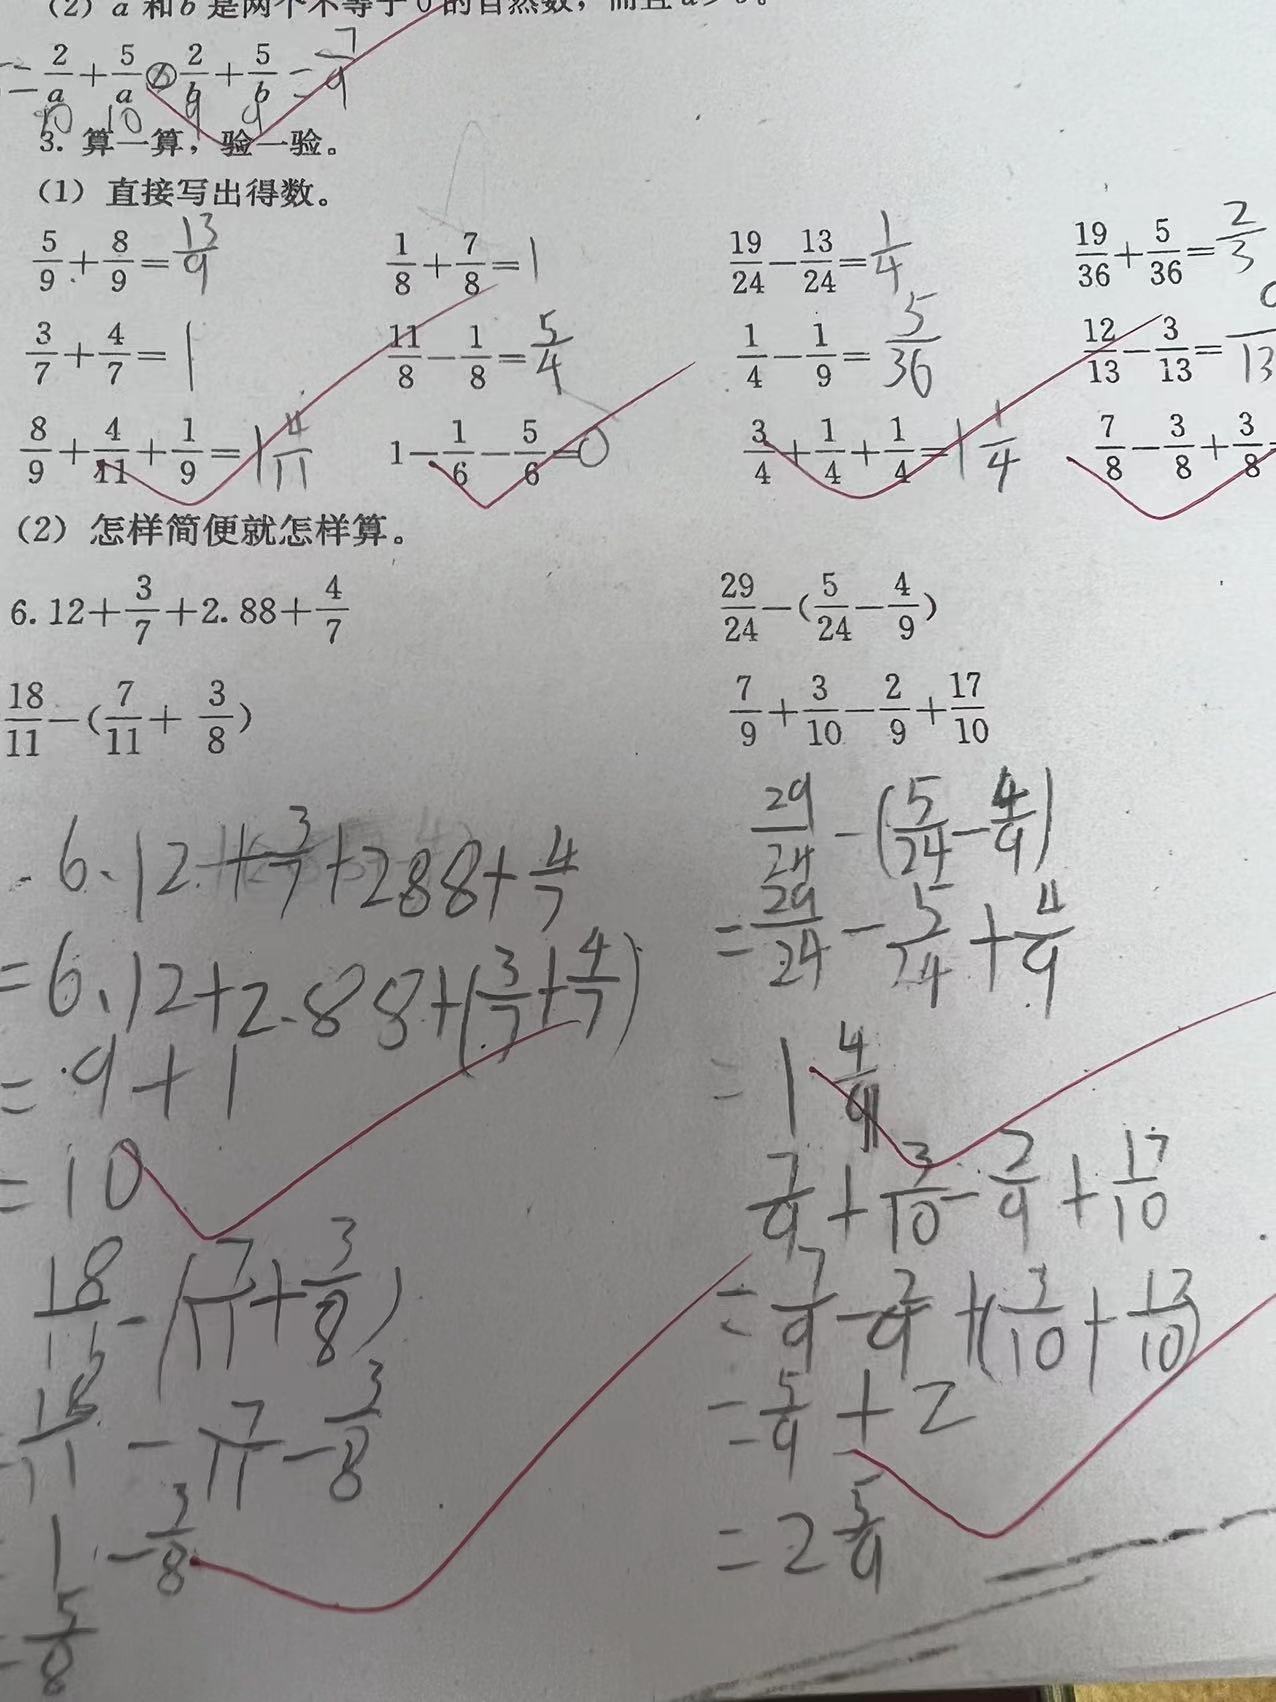 (2) a 和 b 是两个不等于 0 的自然数，而且 a
= 2/a + 5/a 2/b + 5/b = 7/9
10 10 9 9
3. 算一算，验一验。
(1) 直接写出得数。
5/9 + 8/9 = 13/9 1/8 + 7/8 = 1 19/24 − 13/24 = 1/4 19/36 + 5/36 = 2/3
3/7 + 4/7 = 1 11/8 − 1/8 = 5/4 1/4 − 1/9 = 5/36 12/13 − 3/13 = /13
8/9 + 4/11 + 1/9 = 1 4/11 1 − 1/6 − 5/6 = 0 3/4 + 1/4 + 1/4 = 1 1/4 7/8 − 3/8 + 3/8 =
(2) 怎样简便就怎样算。
6.12 + 3/7 + 2.88 + 4/7 29/24 − (5/24 − 4/9)
18/11 − (7/11 + 3/8) 7/9 + 3/10 − 2/9 + 17/10
6.12 + 3/7 + 288 + 4/7
= 6.12 + 2.88 + (3/7 + 4/7)
= 9 + 1
= 10
18/11 − (7/11 + 3/8)
= 18/11 − 7/11 − 3/8
= 1 − 3/8
= 5/8
29/24 − (5/24 − 4/9)
= 29/24 − 5/24 + 4/9
= 1 4/9
7/9 + 3/10 − 2/9 + 17/10
= 7/9 − 2/9 + (3/10 + 17/10)
= 5/9 + 2
= 2 5/9